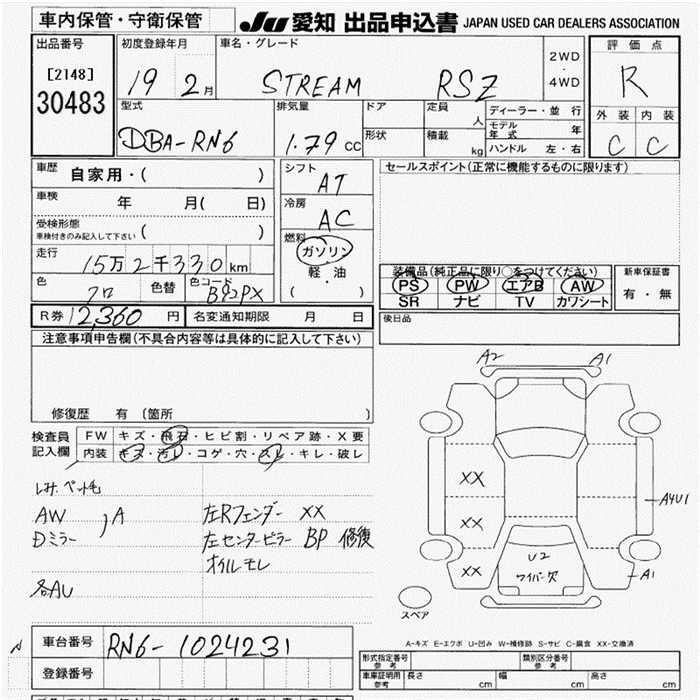 車内保管・守衛保管
JU 愛知 出品申込書 JAPAN USED CAR DEALERS ASSOCIATION
出品番号 初度登録年月 車名・グレード 評価点
[2148] 2WD・4WD
30483 19 2月 STREAM RSZ R
型式 排気量 ドア 定員 人 ディーラー・並行 外装 内装
形状 積載 kg モデル年式 年
DBA-RN6 1.79 cc ハンドル 左・右 C C
車歴 自家用・( ) シフト AT セールスポイント(正常に機能するものに限ります)
車検 年 月( 日) 冷房 AC
受検形態 ( )
車検付きのみ記入して下さい
燃料 ガソリン
走行 15万2千330km 軽・油
( )
装備品(純正品に限り○をつけてください) 新車保証書
色 クロ 色替 色コード B92PX PS PW エアB AW 有・無
SR ナビ TV カワシート
R券 12,360円 名変通知期限 月 日 後日品
注意事項申告欄(不具合内容等は具体的に記入して下さい)
修復歴 有 〔箇所 〕
A2 A1
検査員 FW キズ・飛石・ヒビ割・リペア跡・X要
記入欄 内装 キズ・汚レ・コゲ・穴・スレ・キレ・破レ
シミ. ペット毛
AW
Dミラー ) A
左Rフェンダー XX
左センターピラー BP 修復
オイルモレ
各AU
XX
XX
XX
A4U1
A1
U2
ワイパー欠
スペア
A-キズ E-エクボ U-凹み W-補修跡 S-サビ C-腐食 XX-交換済
車台番号 RN6-1024231
登録番号
形式指定番号 参考 類別区分番号 参考
車庫証明用 参考 長さ cm 幅 cm 高さ cm